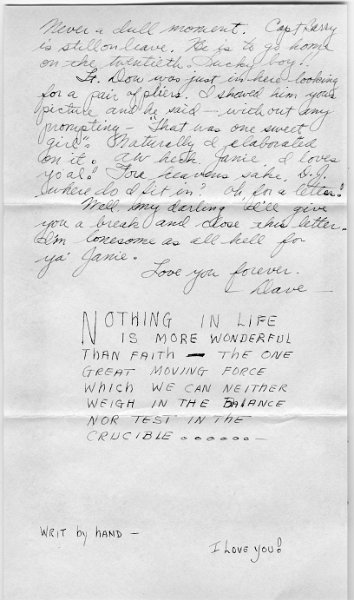 Never a dull moment. Capt Barry
is still on leave. He is to go home
on the twentieth. Lucky boy!
Lt. Dow was just in here looking
for a pair of pliers. I showed him your
picture and he said - without any
prompting - "That was one sweet
girl". Naturally I elaborated
on it. Aw heck, Janie, I loves
yo al! Fore heavens sake,
where do I sit in? Oh for a letter!
Well, my darling I'll give
you a break and close this letter.
I'm lonesome as all hell for
ya' Janie.
Love you forever.
- Dave -
NOTHING IN LIFE
IS MORE WONDERFUL
THAN FAITH — THE ONE
GREAT MOVING FORCE
WHICH WE CAN NEITHER
WEIGH IN THE BALANCE
NOR TEST IN THE
CRUCIBLE ......
WRIT by hAND -
I LOVE YOU!